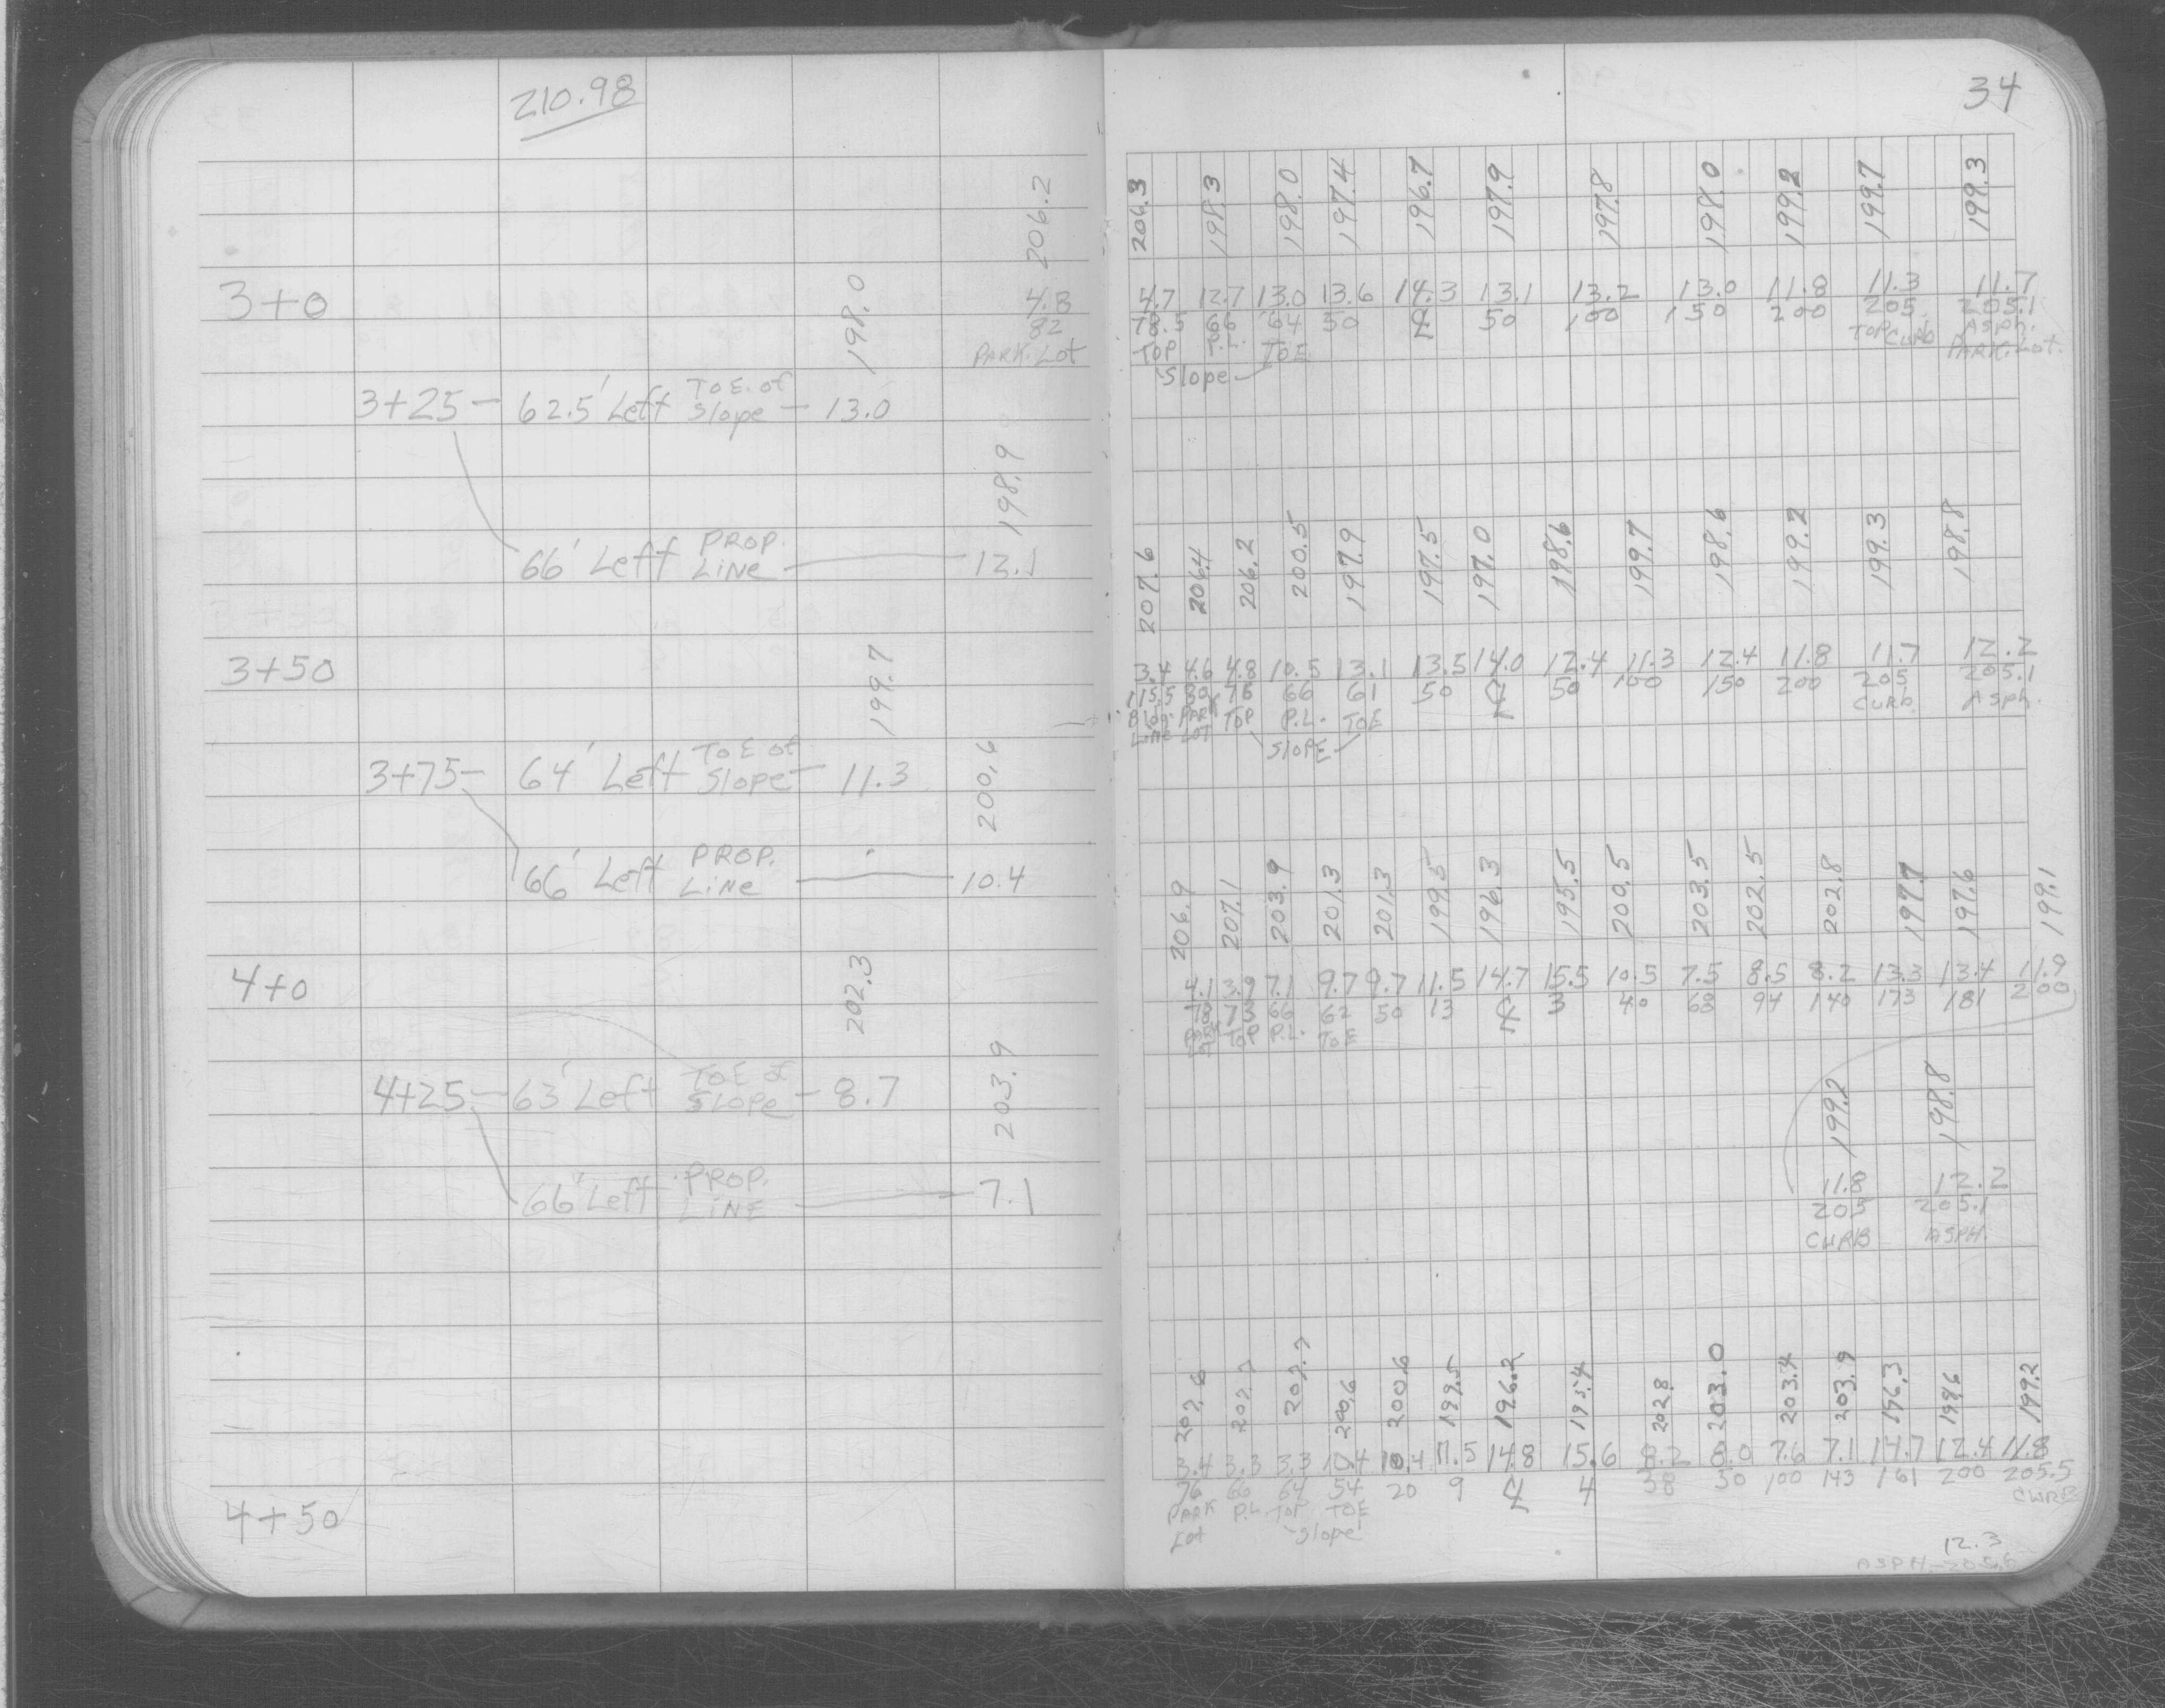 210.98
34
206.2 206.3 198.3 198.0 197.4 196.7 197.9 197.8 198.0 199.2 199.7 199.3
3+0 198.0 4.8 4.7 12.7 13.0 13.6 14.3 13.1 13.2 13.0 11.8 11.3 11.7
82 78.5 66 64 50 ℄ 50 100 150 200 205 205.1
PARK. Lot TOP P.L. TOE TOP CURB ASPH. PARK. Lot.
Slope
3+25 - 62.5' Left TOE of Slope - 13.0
198.9
66' Left PROP. LINE 12.1
207.6 206.4 206.2 200.5 197.9 197.5 197.0 198.6 199.7 198.6 199.2 199.3 198.8
3+50 199.7 3.4 4.6 4.8 10.5 13.1 13.5 14.0 12.4 11.3 12.4 11.8 11.7 12.2
115.5 80 76 66 61 50 ℄ 50 100 150 200 205 205.1
Bldg. Line PARK Lot TOP P.L. TOE CURB ASPH.
SLOPE
3+75 - 64' Left TOE of Slope - 11.3
200.6
66' Left PROP. LINE 10.4
206.9 207.1 203.9 201.3 201.3 199.5 196.3 195.5 200.5 203.5 202.5 202.8 197.7 197.6 199.1
4+0 202.3 4.1 3.9 7.1 9.7 9.7 11.5 14.7 15.5 10.5 7.5 8.5 8.2 13.3 13.4 11.9
78 73 66 62 50 13 ℄ 3 40 63 94 140 173 181 200
PARK Lot TOP P.L. TOE
4+25 - 63' Left TOE of SLOPE - 8.7
203.9
199.2 198.8
66' Left PROP. LINE 7.1
11.8 12.2
205 205.1
CURB ASPH.
207.6 207.7 207.7 200.6 200.6 199.5 196.2 195.4 202.8 203.0 203.4 203.9 196.3 198.6 199.2
3.4 3.3 3.3 10.4 10.4 11.5 14.8 15.6 8.2 8.0 7.6 7.1 14.7 12.4 11.8
4+50 76 66 64 54 20 9 ℄ 4 38 50 100 143 161 200 205.5
PARK Lot P.L. TOP TOE CURB
Slope
12.3
ASPH-205.6